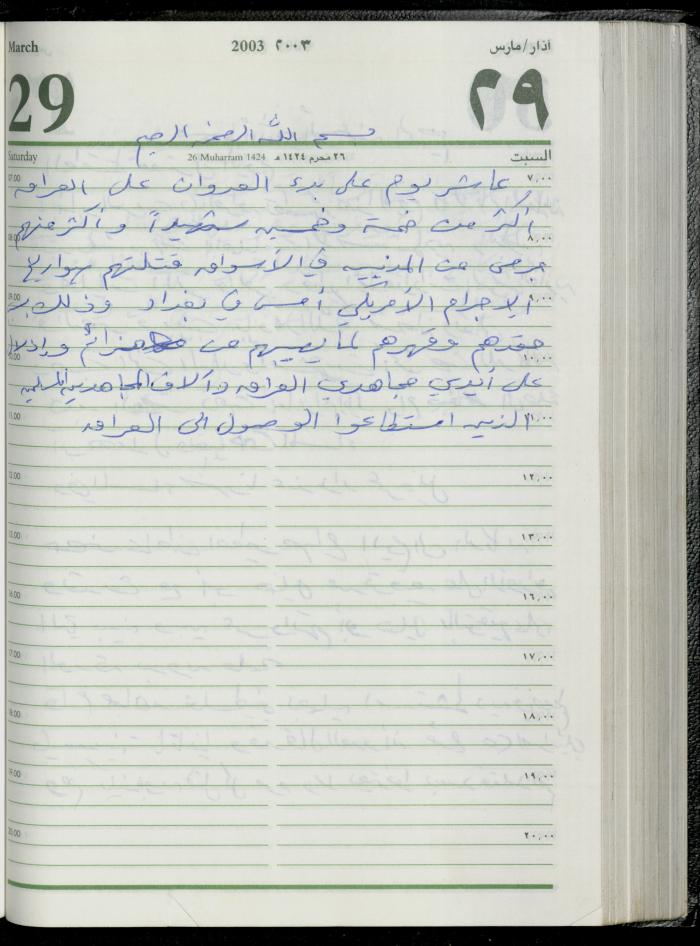 March 2003 ٢٠٠٣ آذار/مارس
29 ٢٩
بسم الله الرحمن الرحيم
Saturday 26 Muharram 1424 ٢٦ محرم ١٤٢٤ هـ السبت
07.00 عاشر يوم على بدء العدوان على العراق ٧,٠٠
أكثر من خمسة وخمسين شهيداً وأكثر منهم
08.00 ٨,٠٠
جرحى من المدنيين في الأسواق قتلتهم صواريخ
09.00 الإجرام الأمريكي أمس في بغداد وذلك ٩,٠٠
حقدهم وقهرهم لما يصيبهم من هزائم وإذلال
10.00 ١٠,٠٠
على أيدي مجاهدي العراق وآلاف المجاهدين المسلمين
11.00 الذين استطاعوا الوصول الى العراق ١١,٠٠
12.00 ١٢,٠٠
13.00 ١٣,٠٠
16.00 ١٦,٠٠
17.00 ١٧,٠٠
18.00 ١٨,٠٠
19.00 ١٩,٠٠
20.00 ٢٠,٠٠